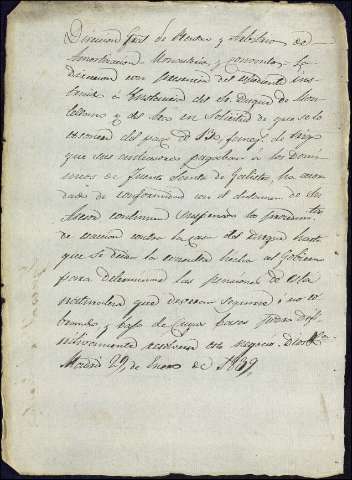 Direccion Gral de Rentas y Arbitrios de
Amortizacion Monasterios y conventos = La
Direccion con presencia del espediente ins
truido á instancia del Sr. Duque de Mon
tellano y del Arco en solicitud de que se le
exonere del pago de 132, fanegs. de trigo
que sus antecesores pagaban á los Domi
nicos de Fuente Santa de Galisteo, ha acor
dado de conformidad con el dictamen de su
Asesor continue suspenso los procedimtos
de accion contra la Casa del Duque hasta
que se decida la consulta hecha al Gobierno
para determinar las pensiones de esta
naturaleza que deberan seguirse ó no co
brando y bajo de cuyas bases podra defi
nitivamente resolverse este negocio. Dios &a.
Madrid 29, de Enero de 1839,